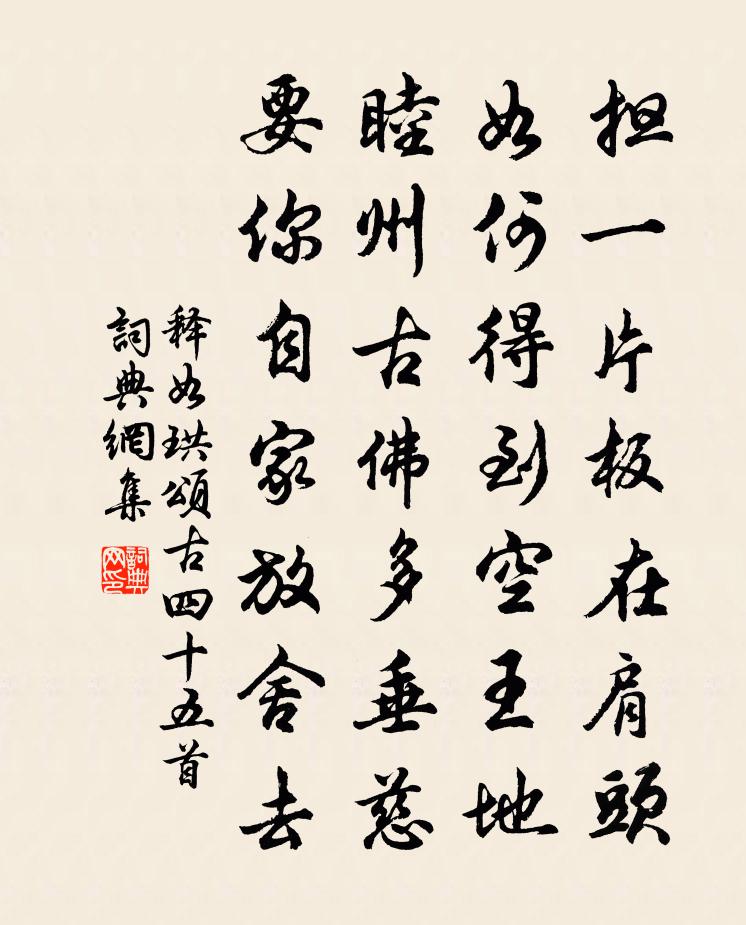 担一片板在肩頭
如何得到空王地
睦州古佛多垂慈
要你自家放舍去
释如珙頌古四十五首
詞典網集
詞典网印